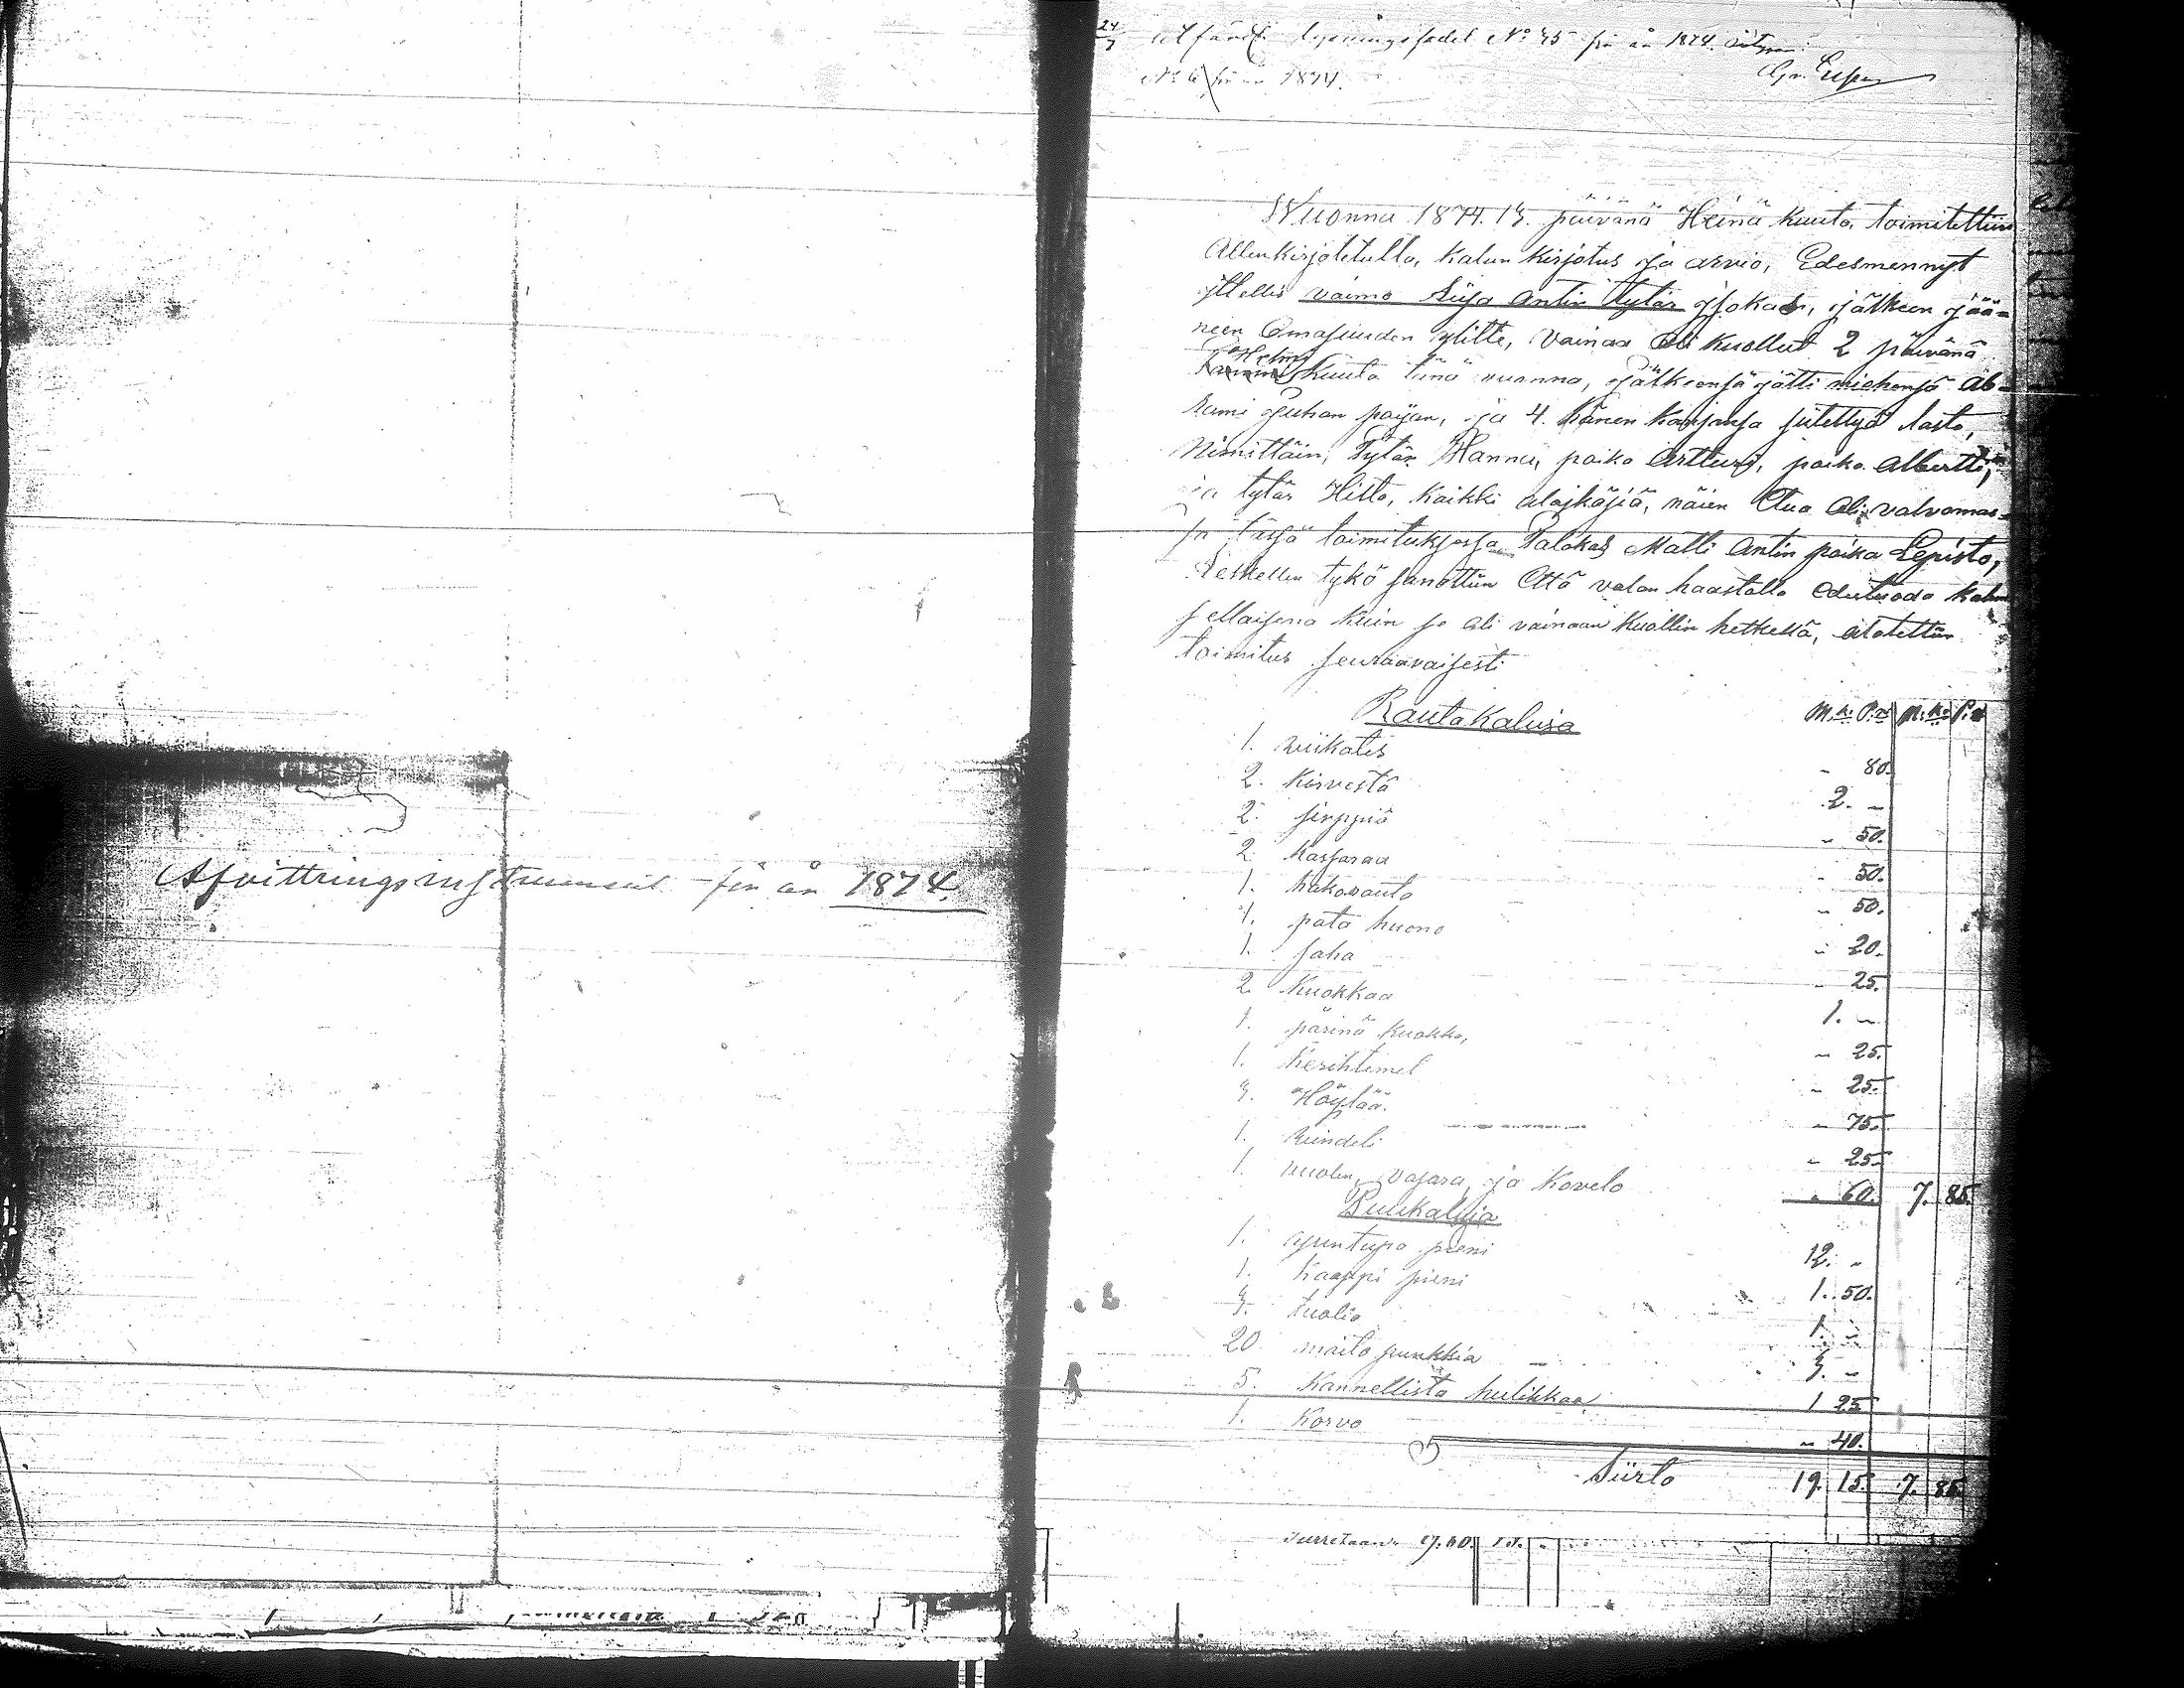 Afvittringsinstrument för år 1874.
24/7 lysningssedel No 45 för år 1874.
No 6 för år 1874.
Wuonna 1874. 13. päivänä Heinä kuuta, toimitettiin
Allenkirjoitetulta, kalun kirjotus ja arvio, Edesmennyt
Ittellis vaimo Siija Antin tytär Isokas, jälkeen jää=
neen Omasuuden ylitte, vainaa Oli kuollut 2 päivänä
Helmi kuuta tänä vuonna, jälkeensä jätti miehensä Ab=
rami Juhan pojan, ja 4. hänen kansansa siitettyä lasta,
Nimittäin, Tytär Hanna, poika Artturi, poika Albertti,
ja tytär Hilta, kaikki alaikäsiä, näien Etua Oli valvomas=
sa tässä toimituksessa Talokas Matti Antin poika Lepistö,
Leskellen tykö sanottiin Että valan haastolla edestuoda kalun
sellaisena kuin se oli vainaan kuollin hetkellä, alotettiin
toimitus seuraavaisesti
Rautakaluja M.k. P.ä M.k. P.ä
1. viikates - 80.
2. kirvestä 2. -
2. sirppiä - 50.
2. kassaraa - 50.
1. hakorauta - 50.
1. pata huono - 20.
1. saha - 25.
2 kuokkaa 1. -
1. pärinä kuokka, - 25.
1. kerihtimet - 25.
3. Höylää. - 75.
1. riindeli - 25.
1. vuolin, vasara, ja kovelo - 60. 7. 85.
Puukaluja
1. ajuntupa pieni 12. -
1. kaappi pieni 1. 50.
3. tuolia 1. -
20 maito punkkia 3. -
5. kannellista hulikkaa 1 25
1. korvo - 40.
Siirto 19. 15. 7. 85.